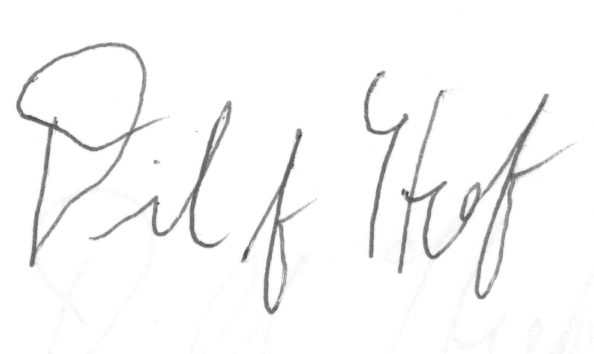 Dilf Hof